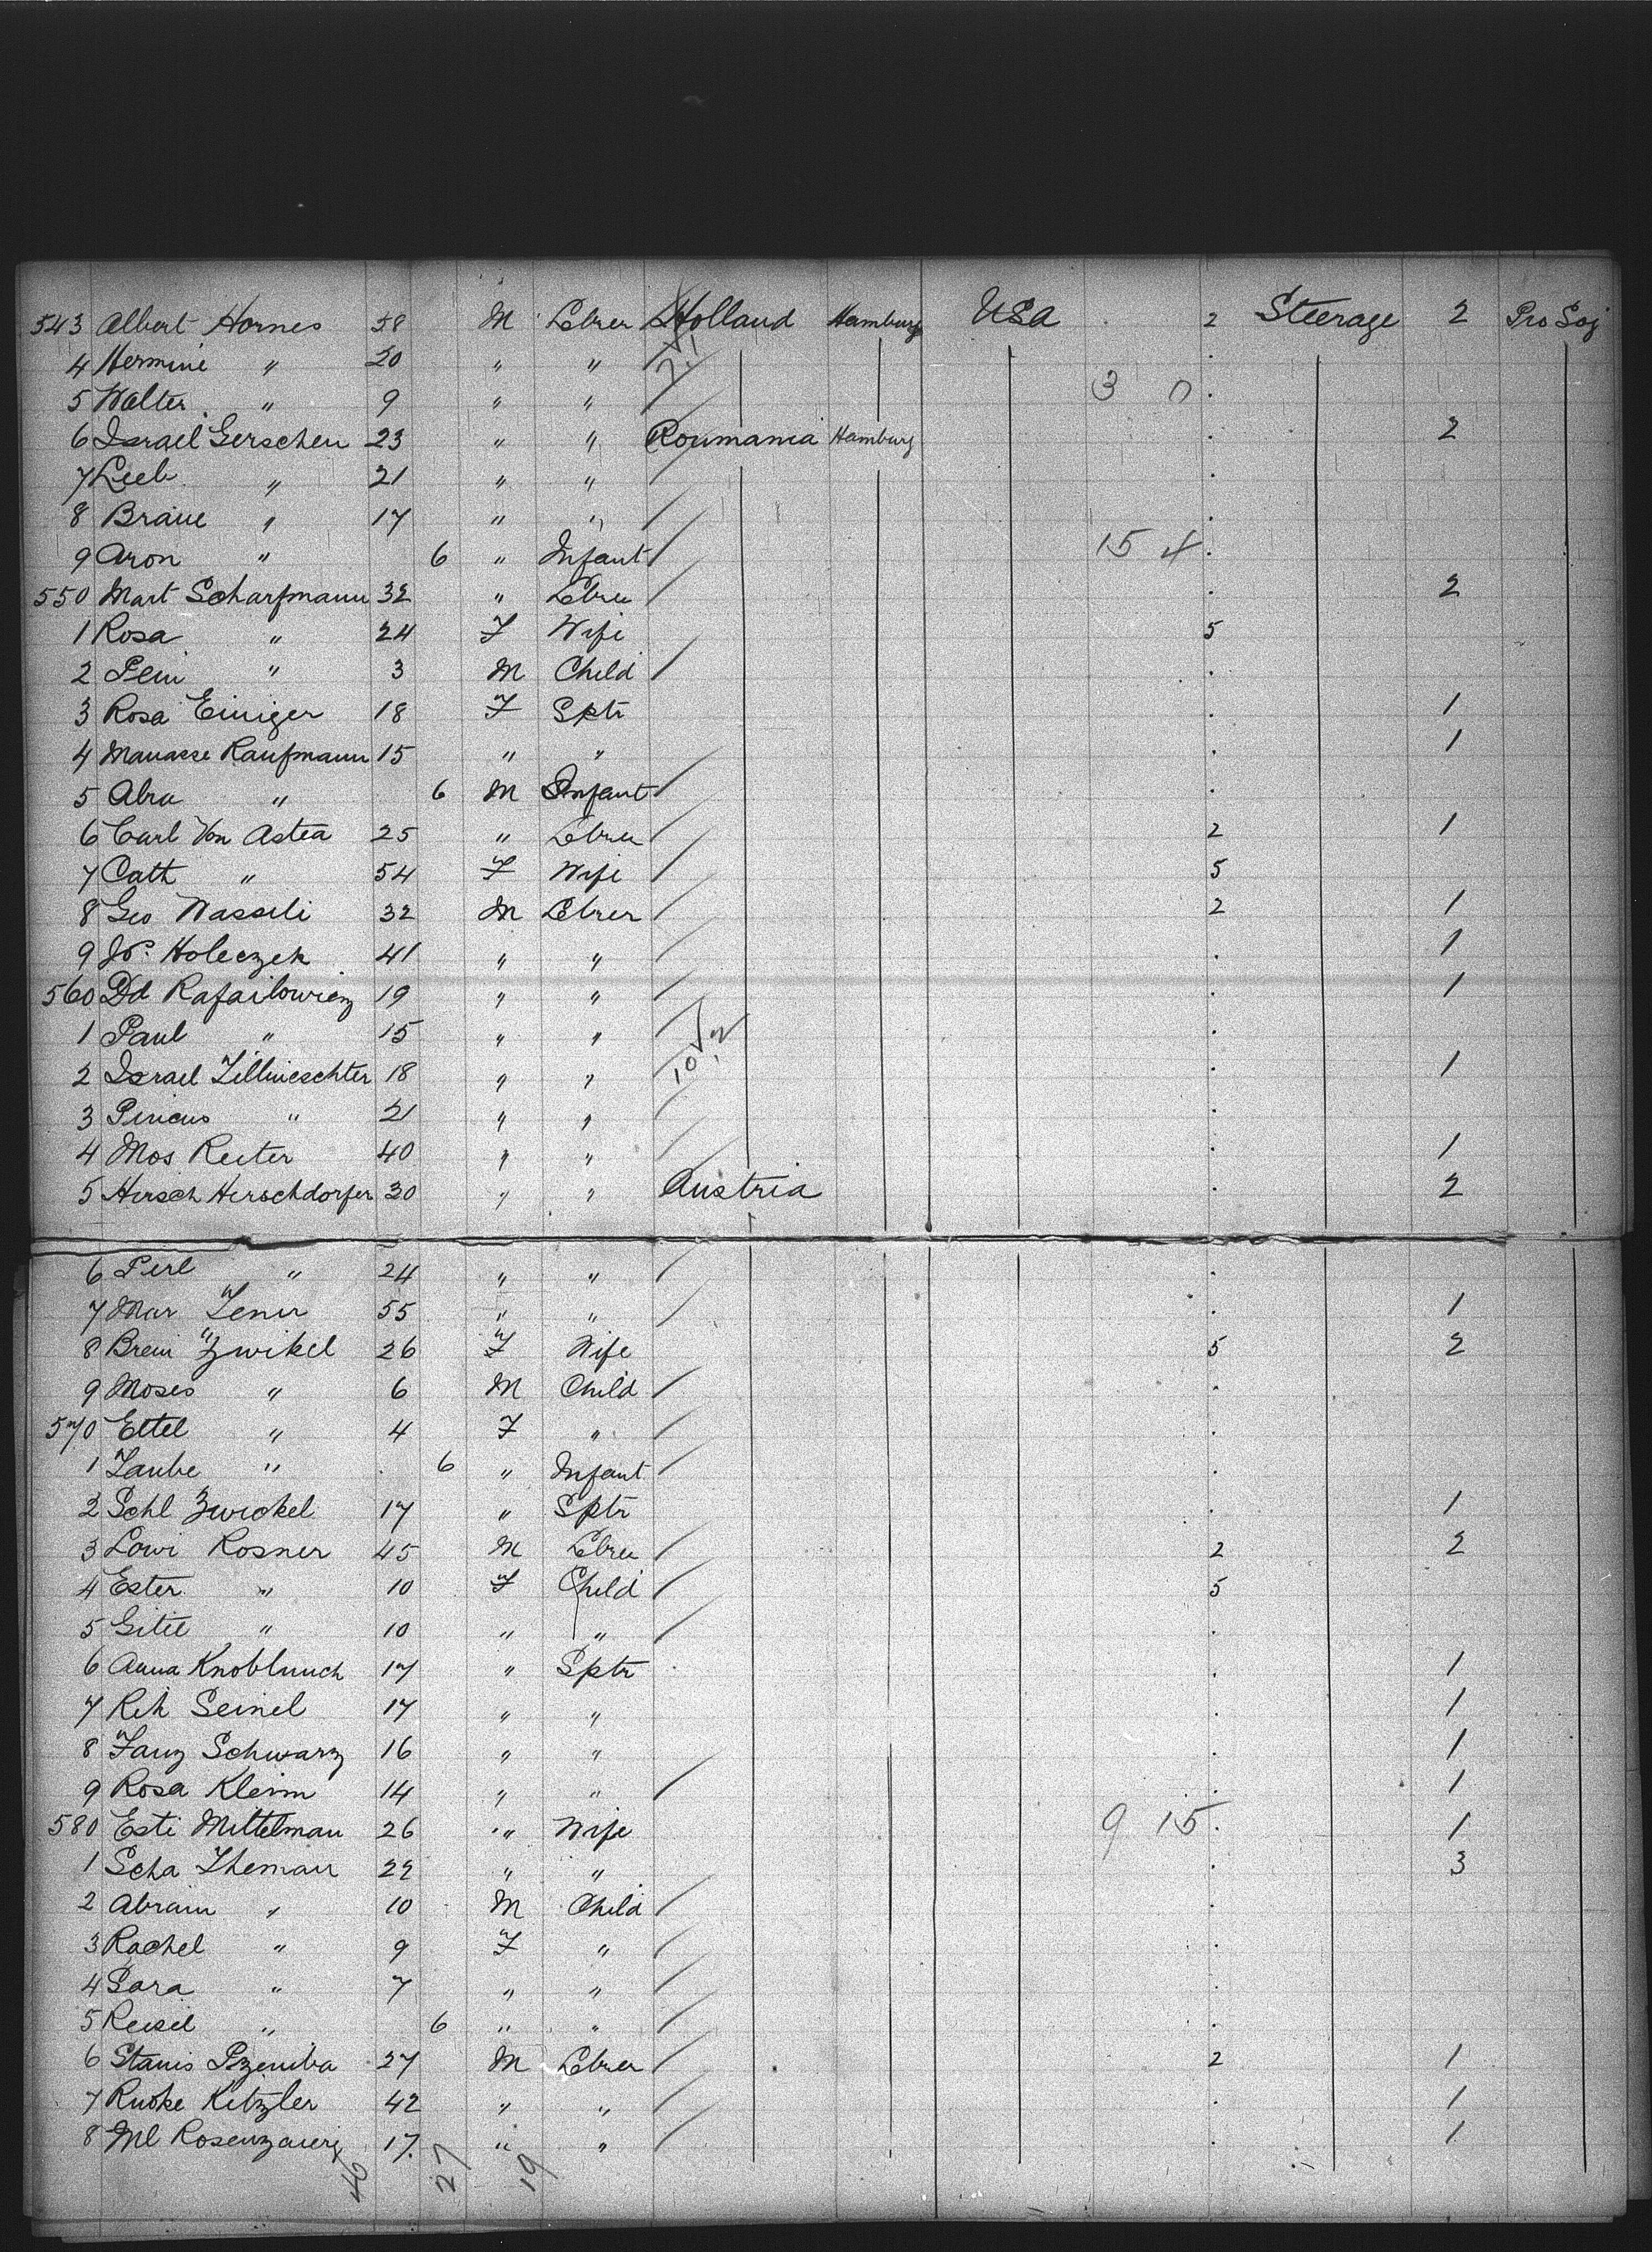 543 Albert Hornes 58 M Lebrer Holland Hamburg USA 2 Steerage 2 Pro Soj
4 Hermine " 20 " "
5 Walter " 9 " " 3 0
6 Israel Gerschen 23 " " Roumania Hamburg 2
7 Leeb " 21 " "
8 Braue " 17 " "
9 Aron " 6 " Infant 15 4
550 Mart Scharfmann 32 " Lbrer 2
1 Rosa " 24 F Wife 5
2 " 3 M Child
3 Rosa Einiger 18 F Sptr 1
4 Manasse Kaufmann 15 " " 1
5 Abra " 6 M Infant
6 Carl Von Astea 25 " Lbrer 2 1
7 Cath " 54 F Wife 5
8 Geo Wassili 32 M Lbrer 2 1
9 Holeczek 41 " " 1
560 Dd Rafailowicz 19 " " 1
1 Paul " 15 " " 10
2 Israel Zillineschter 18 " " 1
3 Pincus " 21 " "
4 Mos Reiter 40 " " 1
5 Hersch Herschdorfer 30 " " Austria 2
6 Perl " 24 " "
7 Mar 55 " " 1
8 Brein Zwikel 26 F Wife 5 2
9 Moses " 6 M Child
570 Ettel " 4 F "
1 Taube " 6 " Infant
2 Schl Zwickel 17 " Sptr 1
3 Lowi Rosner 45 M Lbrer 2 2
4 Ester " 10 F Child 5
5 Gitel " 10 " "
6 Anna Knoblauch 17 " Sptr 1
7 Rch Seinel 17 " " 1
8 Fanz Schwarz 16 " " 1
9 Rosa Kleinn 14 " " 1
580 Esti Mittelman 26 " Wife 9 15 1
1 Scha Theman 22 " " 3
2 Abram " 10 M Child
3 Rachel " 9 F "
4 Sara " 7 " "
5 Reisel " 6 " "
6 Stanis Pzemba 27 M Lbrer 2 1
7 Kitzler 42 " " 1
8 Ml Rosenzweig 17 " " 1
46 27 19